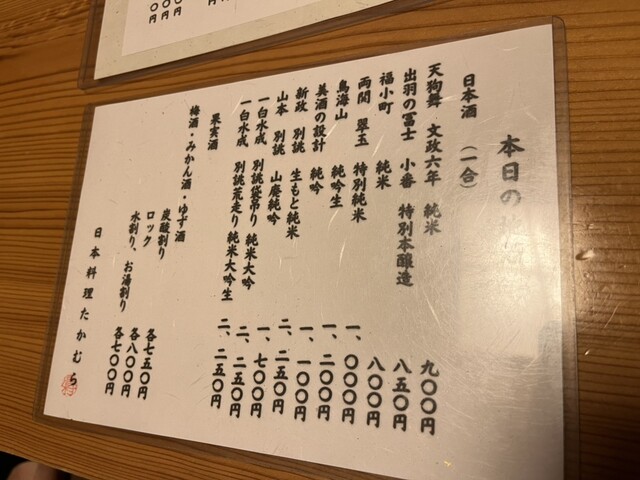 本日の
日本酒 (一合)
天狗舞 文政六年 純米 九〇〇円
出羽の冨士 小番 特別本醸造 八五〇円
福小町 純米 八〇〇円
両関 翠玉 特別純米 一、〇〇〇円
鳥海山 純吟生 一、二〇〇円
美酒の設計 純吟 一、一〇〇円
新政 別誂 生もと純米 二、二五〇円
山本 別誂 山廃純吟 一、七〇〇円
一白水成 別誂袋吊り 純米大吟 二、二五〇円
一白水成 別誂荒走り 純米大吟生 二、二五〇円
果実酒
梅酒・みかん酒・ゆず酒
炭酸割り 各七五〇円
ロック 各八〇〇円
水割り、お湯割り 各七〇〇円
日本料理たかむら